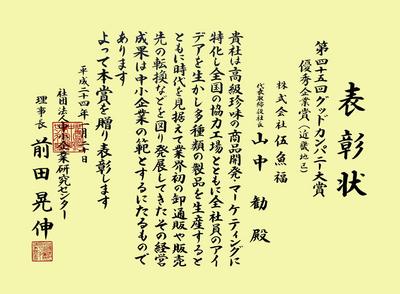 表彰状
第四十五回グッドカンパニー大賞
優秀企業賞(近畿地区)
株式会社伍魚福
代表取締役社長
山中勧殿
貴社は高級珍味の商品開発・マーケティングに
特化し全国の協力工場とともに全社員のアイ
デアを生かし多種類の製品を生産すると
ともに時代を見据えて業界初の卸通販や販売
先の転換などを図り発展してきたその経営
成果は中小企業の範とするにたるもので
あります
よって本賞を贈り表彰します
平成二十四年一月二十日
社団法人中小企業研究センター
理事長
前田晃伸